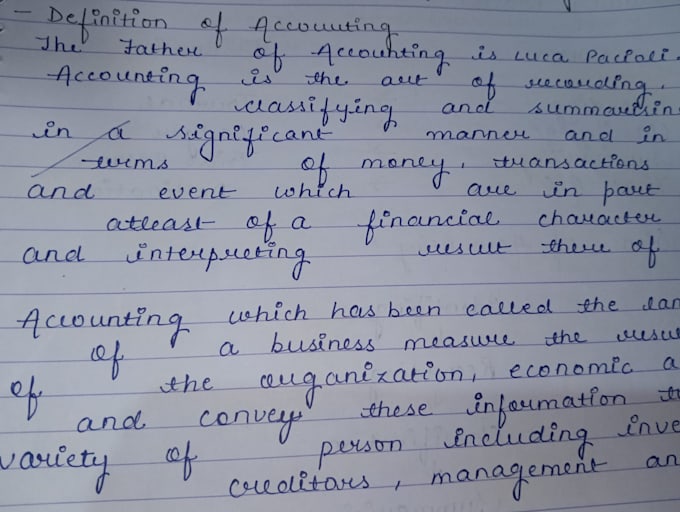 - Definition of Accounting
The Father of Accounting is Luca Pacioli.
Accounting is the art of recording,
classifying and summarisin
in a significant manner and in
terms of money, transactions
and event which are in part
atleast of a financial character
and interpreting result there of
Accounting which has been called the lan
of a business measure the resu
of the organization, economic a
and convey these information t
variety of person including inve
creditors, management an